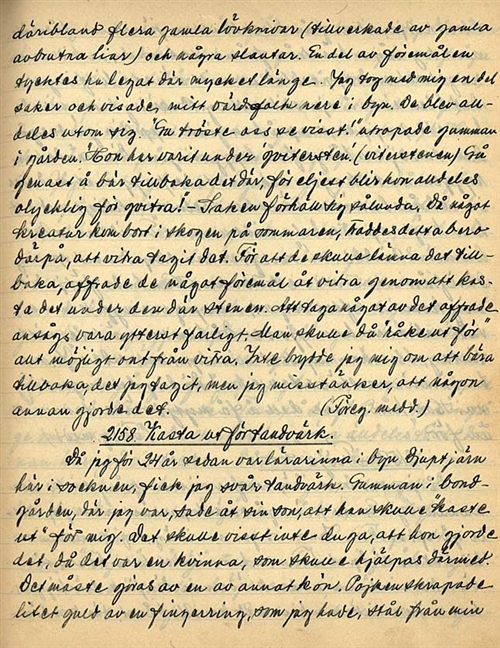 däribland flera gamla lövknivar (tillverkade av gamla
avbrutna liar) och några slantar. En del av föremålen
tycktes ha legat där mycket länge. Jag tog med mig en del
saker och visade mitt värdsfolk nere i byn. De blev all-
deles utom sig. "Gu tröste oss se visst!" utropade gumman
i gården. "Hon har varit under 'qvitersten'! (vitterstenen) Gå
genast å bär tillbaka det där, för eljest blir hon alldeles
olycklig för qvitra! – Saken förhöll sig sålunda. Då något
kreatur kom bort i skogen på sommaren, troddes detta bero
därpå, att vitra tagit det. För att de skulle lämna det till-
baka, offrade de något föremål åt vitra genom att kas-
ta det under den där stenen. Att taga något av det offrade
ansågs vara ytterst farligt. Man skulle då "råke ut för"
allt möjligt ont från vitra. Inte brydde jag mig om att bära
tillbaka det jag tagit, men jag misstänker, att någon
annan gjorde det. (Föreg. medd.)
2158. Kasta ut för tandvärk.
Då jag för 24 år sedan var lärarinna i byn Djuptjärn
här i socknen, fick jag svår tandvärk. Gumman i bond-
gården, där jag var, sade åt sin son, att han skulle "kaste
ut" för mig. Det skulle visst inte duga, att hon gjorde
det, då det var en kvinna, som skulle hjälpas därmed.
Det måste göras av en av annat kön. Pojken skrapade
litet guld av en fingerring, som jag hade, stål från min